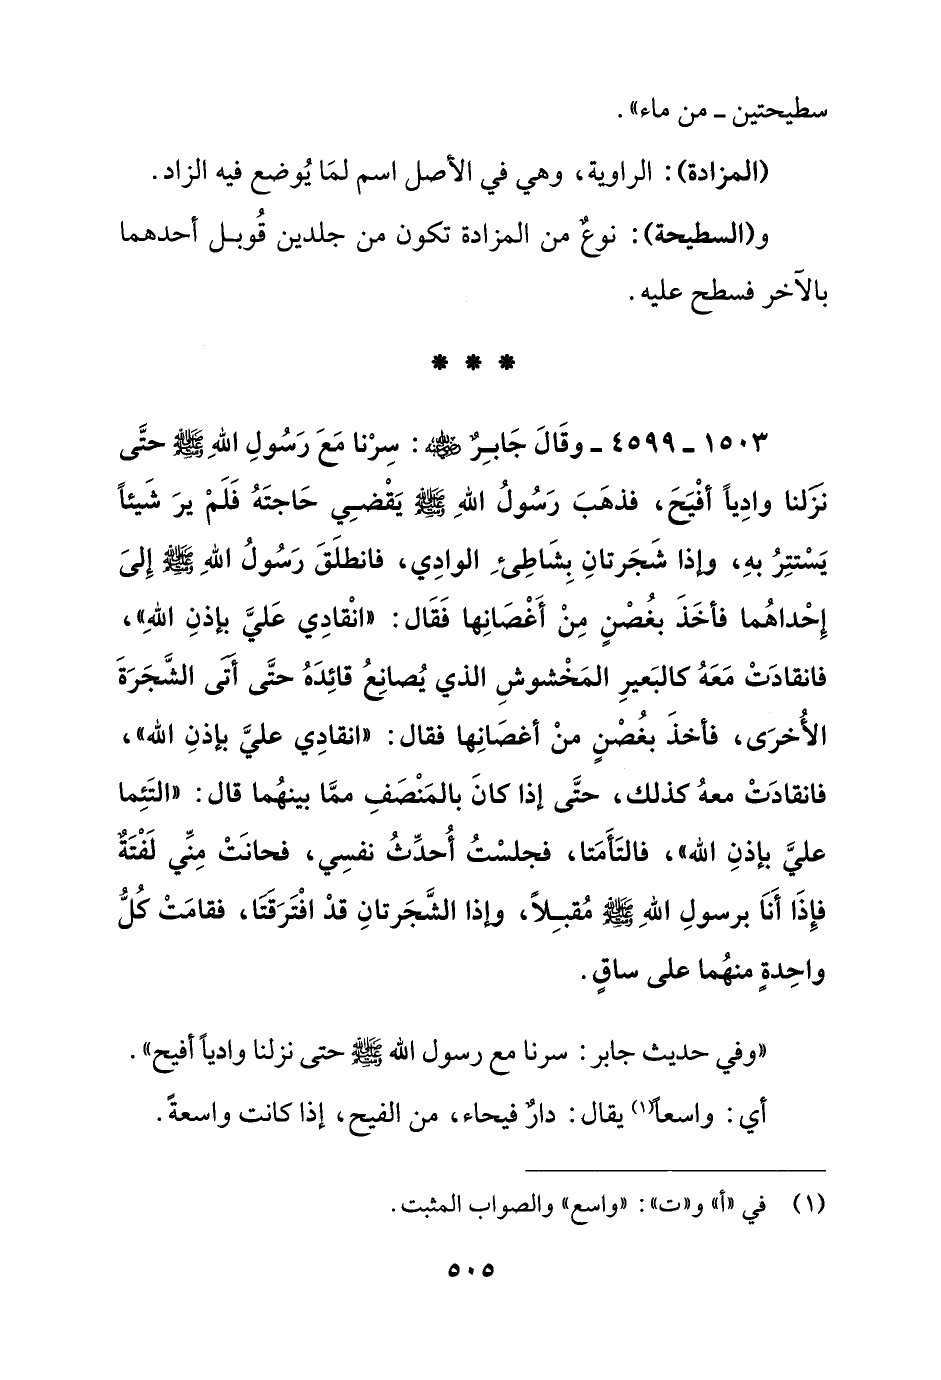 سطيحتين ـ من ماء».
(المزادة): الراوية، وهي في الأصل اسم لمَا يُوضع فيه الزاد.
و(السطيحة): نوعٌ من المزادة تكون من جلدين قُوبل أحدهما
بالآخر فسطح عليه.
* * *
١٥٠٣ ـ ٤٥٩٩ ـ وقَالَ جَابِرٌ ﵁: سِرْنا مَعَ رَسُولِ اللهِ ﷺ حتَّى
نَزَلنا وادِياً أفْيَحَ، فذهَبَ رَسُولُ اللهِ ﷺ يَقْضِي حَاجتَهُ فَلَمْ يرَ شَيئاً
يَسْتتِرُ بهِ، وإذا شَجَرتانِ بِشَاطِئِ الوادِي، فانطلَقَ رَسُولُ اللهِ ﷺ إلىَ
إحْداهُما فأخَذَ بغُصْنٍ مِنْ أَغْصَانِها فَقَال: «انْقادِي عَليَّ بإذنِ اللهِ»،
فانقادَتْ مَعَهُ كالبَعيرِ المَخْشوشِ الذي يُصانِعُ قائِدَهُ حتَّى أَتَى الشَّجَرَةَ
الأُخرَى، فأخذَ بغُصْنٍ منْ أغصَانِها فقال: «انقادِي عليَّ بإذنِ الله»،
فانقادَتْ معهُ كذلك، حتَّى إذا كانَ بالمَنْصَفِ ممَّا بينهُما قال: «التَئِما
عليَّ بإذنِ الله»، فالتَأَمَتا، فجلسْتُ أُحدِّثُ نفسِي، فحانَتْ مِنِّي لَفْتَةٌ
فإِذَا أَنَا برسولِ اللهِ ﷺ مُقبِلاً، وإذا الشَّجَرتانِ قدْ افْتَرَقَتَا، فقامَتْ كُلُّ
واحِدةٍ منهُما على ساقٍ.
«وفي حديث جابر: سرنا مع رسول الله ﷺ حتى نزلنا وادياً أفيح».
أي: واسعاً(١) يقال: دارٌ فيحاء، من الفيح، إذا كانت واسعةً.
(١) في «أ» و«ت»: «واسع» والصواب المثبت.
٥٠٥